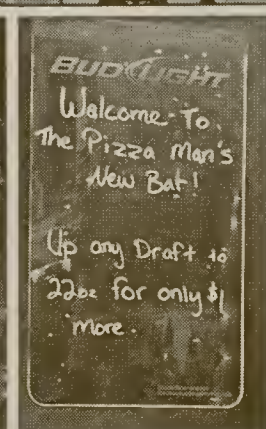 BUD LIGHT
Welcome To
The Pizza Man's
New Bar!
Up any Draft to
22oz for only $1
more.